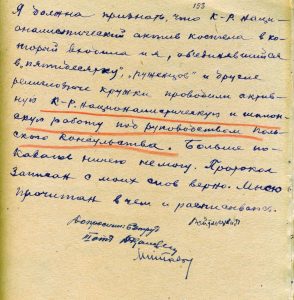 133
Я должна признать, что К-Р. Наци-
оналистический актив костела в ко-
торой входила и я, объединявшийся
в „пятидесярку“, „ружецов“ и другие
религиозные кружки проводили актив-
ную К-Р. Националистическую и шпион-
скую работу под руководством Поль-
ского Консульства. Больше по-
казать ничего не могу. Протокол
Записан с моих слов верно. Мною
прочитан в чем и расписываюсь.